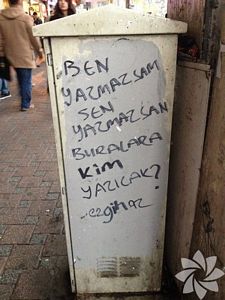 BEN
YAZMAZSAM
SEN
YAZMAZSAN
BURALARA
KİM
YAZICAK?